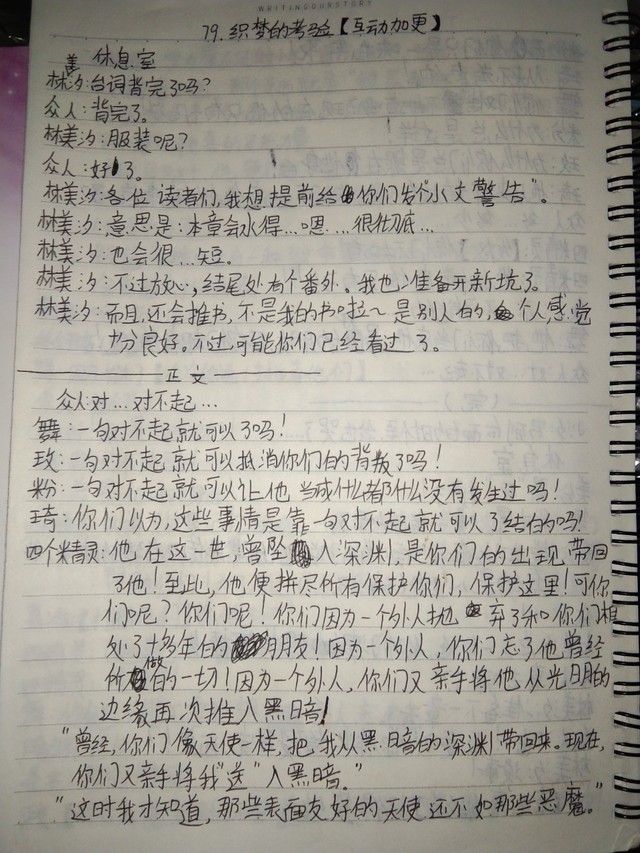 WRITINGOURSTORY
79.织梦的考验【互动加更】
美 休息室
林汐:台词背完了吗?
众人:背完了。
林美汐:服装呢?
众人:好了。
林美汐:各位读者们,我想提前给你们发个"水文警告"。
林美汐:意思是:本章会水得...嗯...很彻底...
林美汐:也会很...短。
林美汐:不过放心,结尾处有个番外。我也准备开新坑了。
林美汐:而且,还会推书,不是我的书啦~是别人的,个人感觉
十分良好。不过,可能你们已经看过了。
正文
众人:对...对不起...
舞:一句对不起就可以了吗!
玫:一句对不起就可以抵消你们的背叛了吗!
粉:一句对不起就可以让他当成什么都什么没有发生过吗!
琦:你们以为,这些事情是靠一句对不起就可以了结的吗!
四个精灵:他在这一世,曾坠入深渊,是你们的出现带回
了他!至此,他便拼尽所有保护你们,保护这里!可你
们呢?你们呢!你们因为一个外人抛弃了和你们相
处了十多年的朋友!因为一个外人,你们忘了他曾经
所做的一切!因为一个外人,你们又亲手将他从光明的
边缘再次推入黑暗!
"曾经,你们像天使一样,把我从黑暗的深渊带回来。现在,
你们又亲手将我"送"入黑暗。"
"这时我才知道,那些表面友好的天使还不如那些恶魔。"